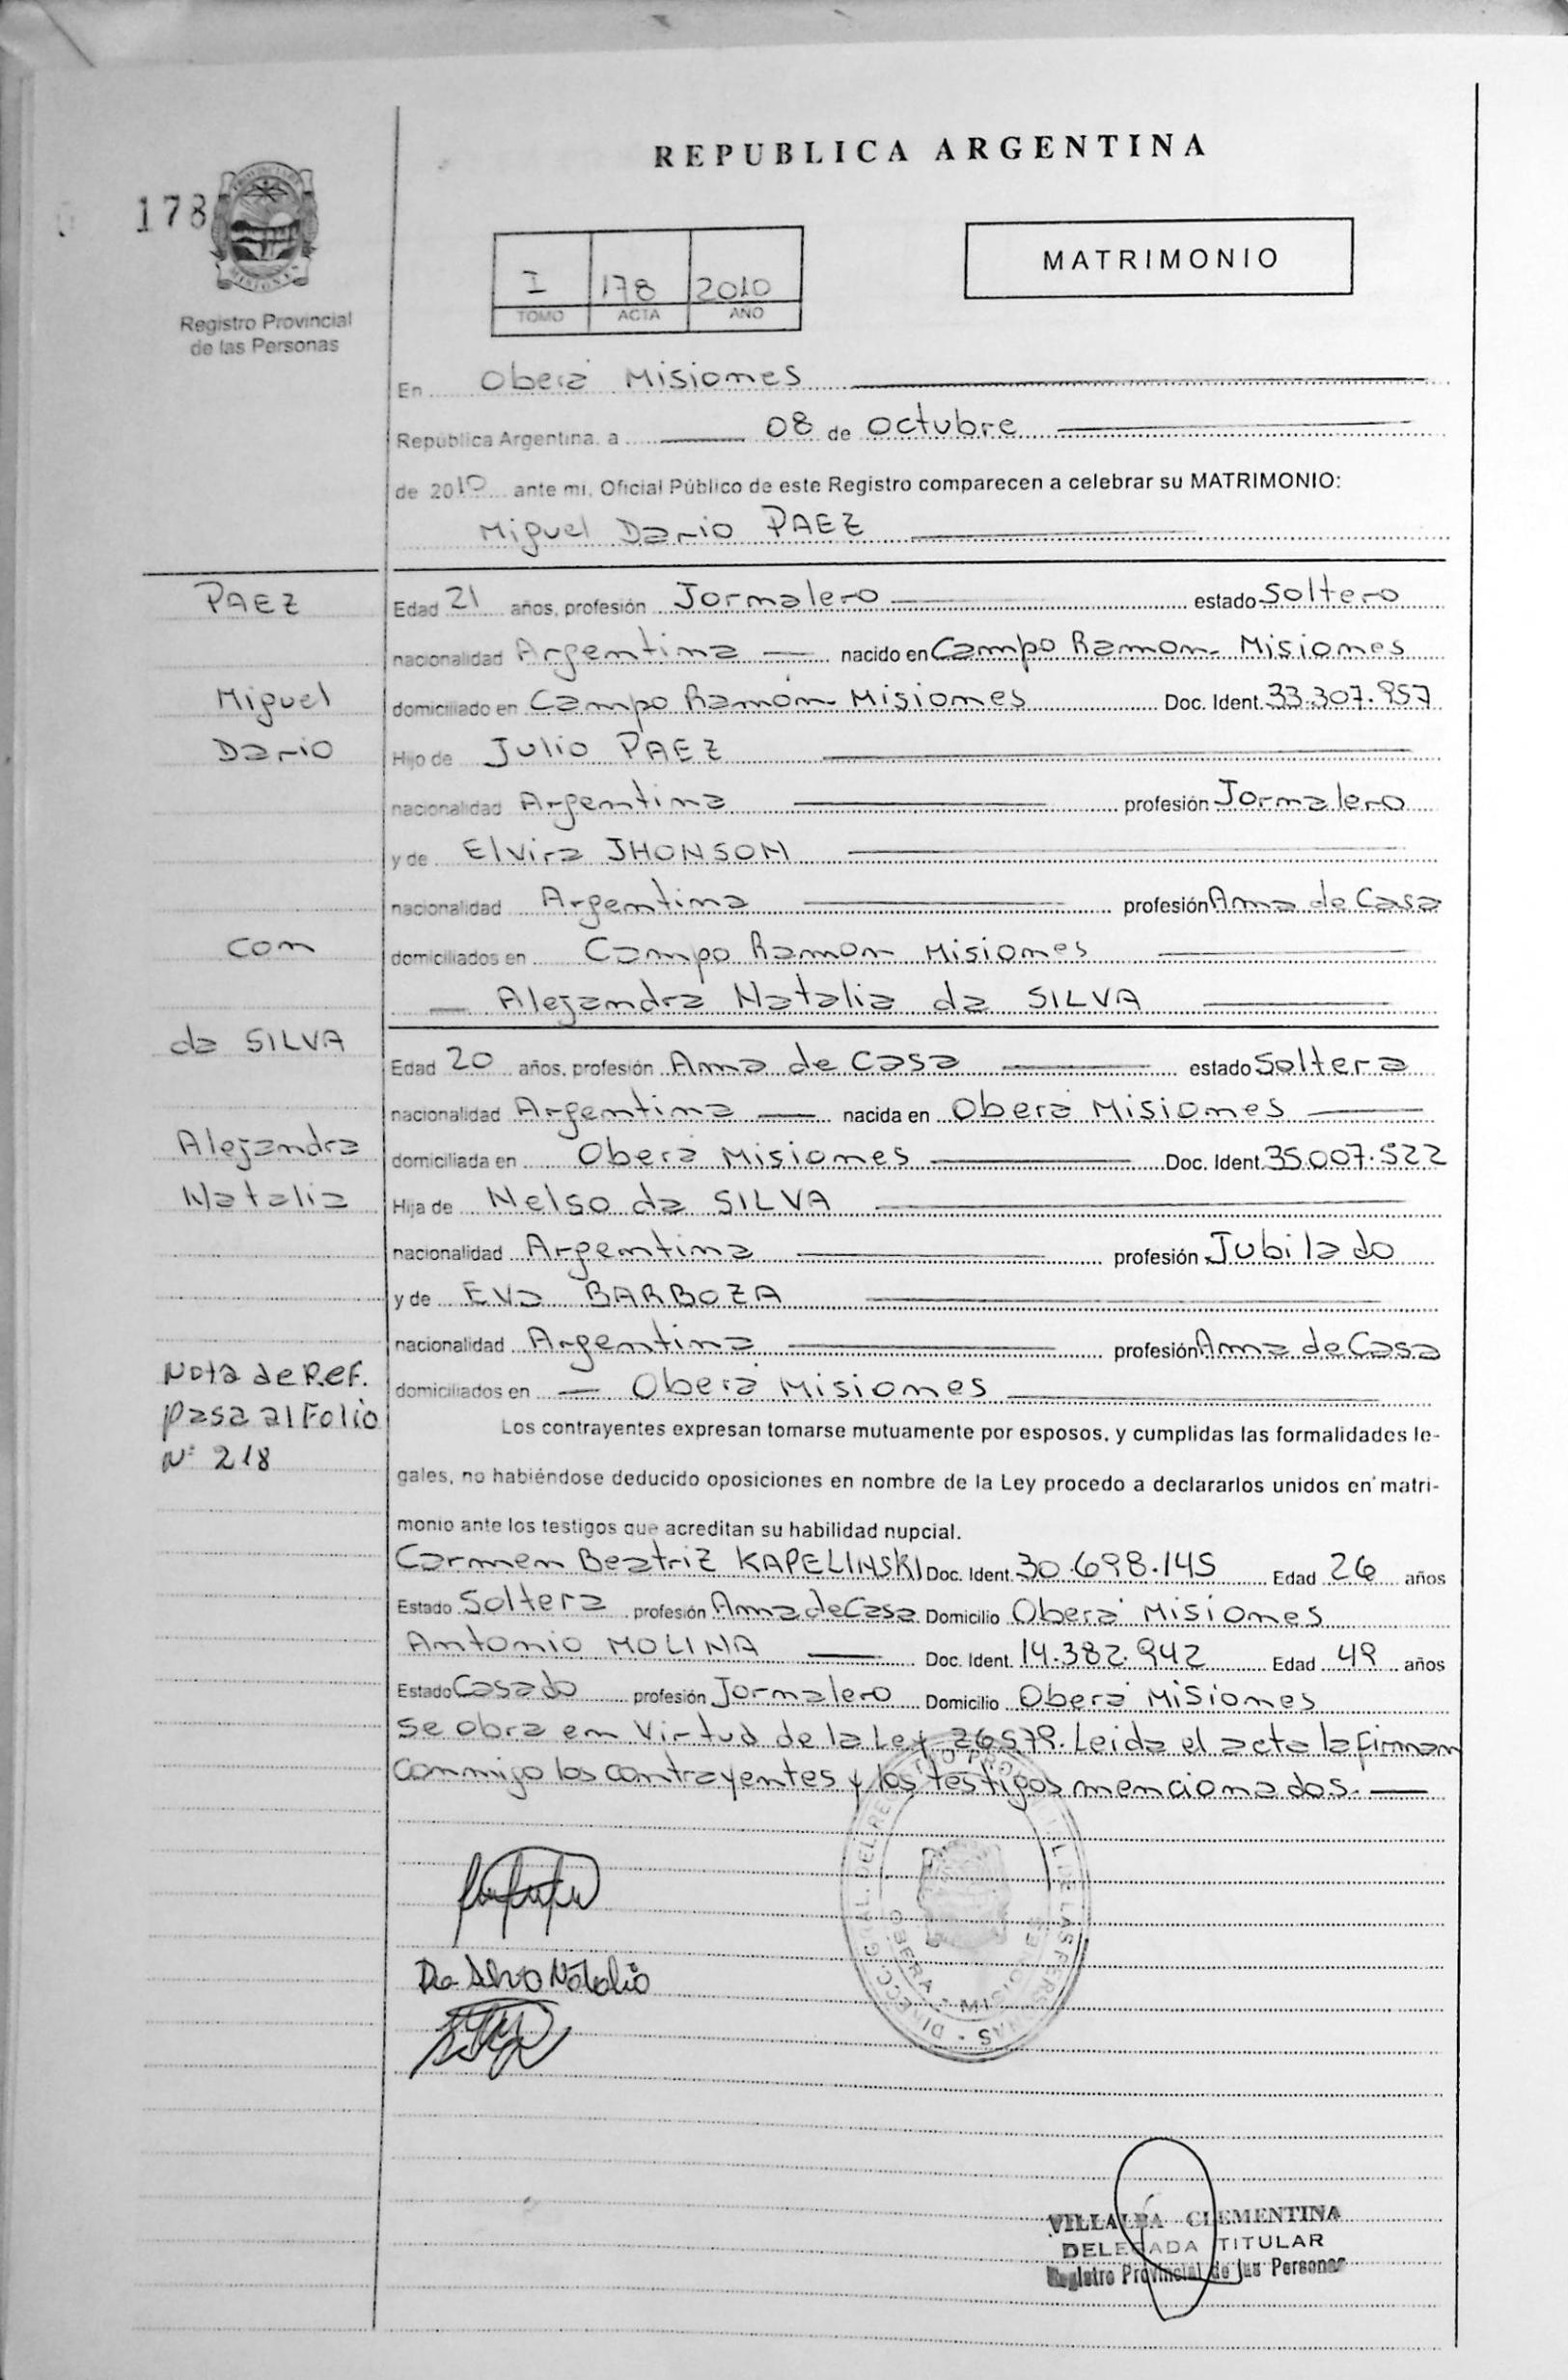 REPUBLICA ARGENTINA
178
MATRIMONIO
I 178 2010
TOMO ACTA AÑO
Registro Provincial
de las Personas
En Oberá Misiones
República Argentina, a 08 de octubre
de 2010 ante mi, Oficial Público de este Registro comparecen a celebrar su MATRIMONIO:
Miguel Dario PAEZ
PAEZ
Edad 21 años, profesión Jornalero estado Soltero
nacionalidad Argentina nacido en Campo Ramon- Misiones
Miguel
domiciliado en Campo Ramón- Misiones Doc. Ident. 33.307.957
Dario
Hijo de Julio PAEZ
nacionalidad Argentina profesión Jornalero
y de Elvira JHONSON
nacionalidad Argentina profesión Ama de Casa
con
domiciliados en Campo Ramon Misiones
Alejandra Natalia da SILVA
da SILVA
Edad 20 años, profesión Ama de Casa estado Soltera
nacionalidad Argentina nacida en Oberá Misiones
Alejandra
domiciliada en Oberá Misiones Doc. Ident. 35.007.522
Natalia
Hija de Nelso da SILVA
nacionalidad Argentina profesión Jubilado
y de Eva BARBOZA
nacionalidad Argentina profesión Ama de Casa
Nota de Ref.
domiciliados en Oberá Misiones
pasa al Folio
Los contrayentes expresan tomarse mutuamente por esposos, y cumplidas las formalidades le-
N° 218
gales, no habiéndose deducido oposiciones en nombre de la Ley procedo a declararlos unidos en matri-
monio ante los testigos que acreditan su habilidad nupcial.
Carmen Beatriz KAPELINSKI Doc. Ident. 30.698.145 Edad 26 años
Estado Soltera profesión Ama de Casa Domicilio Oberá Misiones
Antonio MOLINA Doc. Ident. 14.382.942 Edad 49 años
Estado Casado profesión Jornalero Domicilio Oberá Misiones
Se obra en Virtud de la Ley 26579. Leida el acta la firman
conmigo los contrayentes y los testigos mencionados.
Da Silva Natalia
VILLALBA CLEMENTINA
DELEGADA TITULAR
Registro Provincial de las Personas